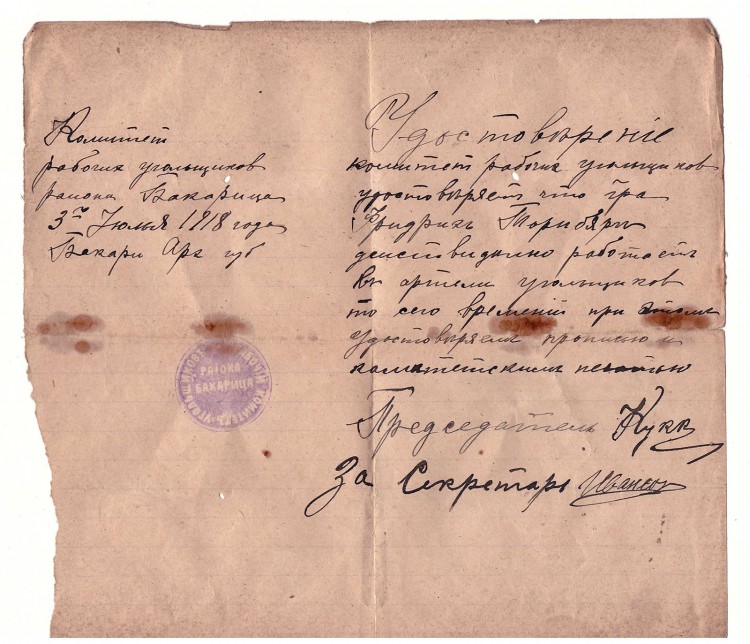 Комитет
рабочих угольщиков
района Бакарица
3го Июля 1918 года
Бакари Арх губ
РАЙОНА
БАКАРИЦА
Удостоверение
комитет рабочих угольщиков
удостоверяет что гра
Фридрих
действидкно работает
в артели угольщиков
то сего времений при
удостоверяем прописю и
комитетским печатью
Председатель Кукк
За Секретарь Иванов